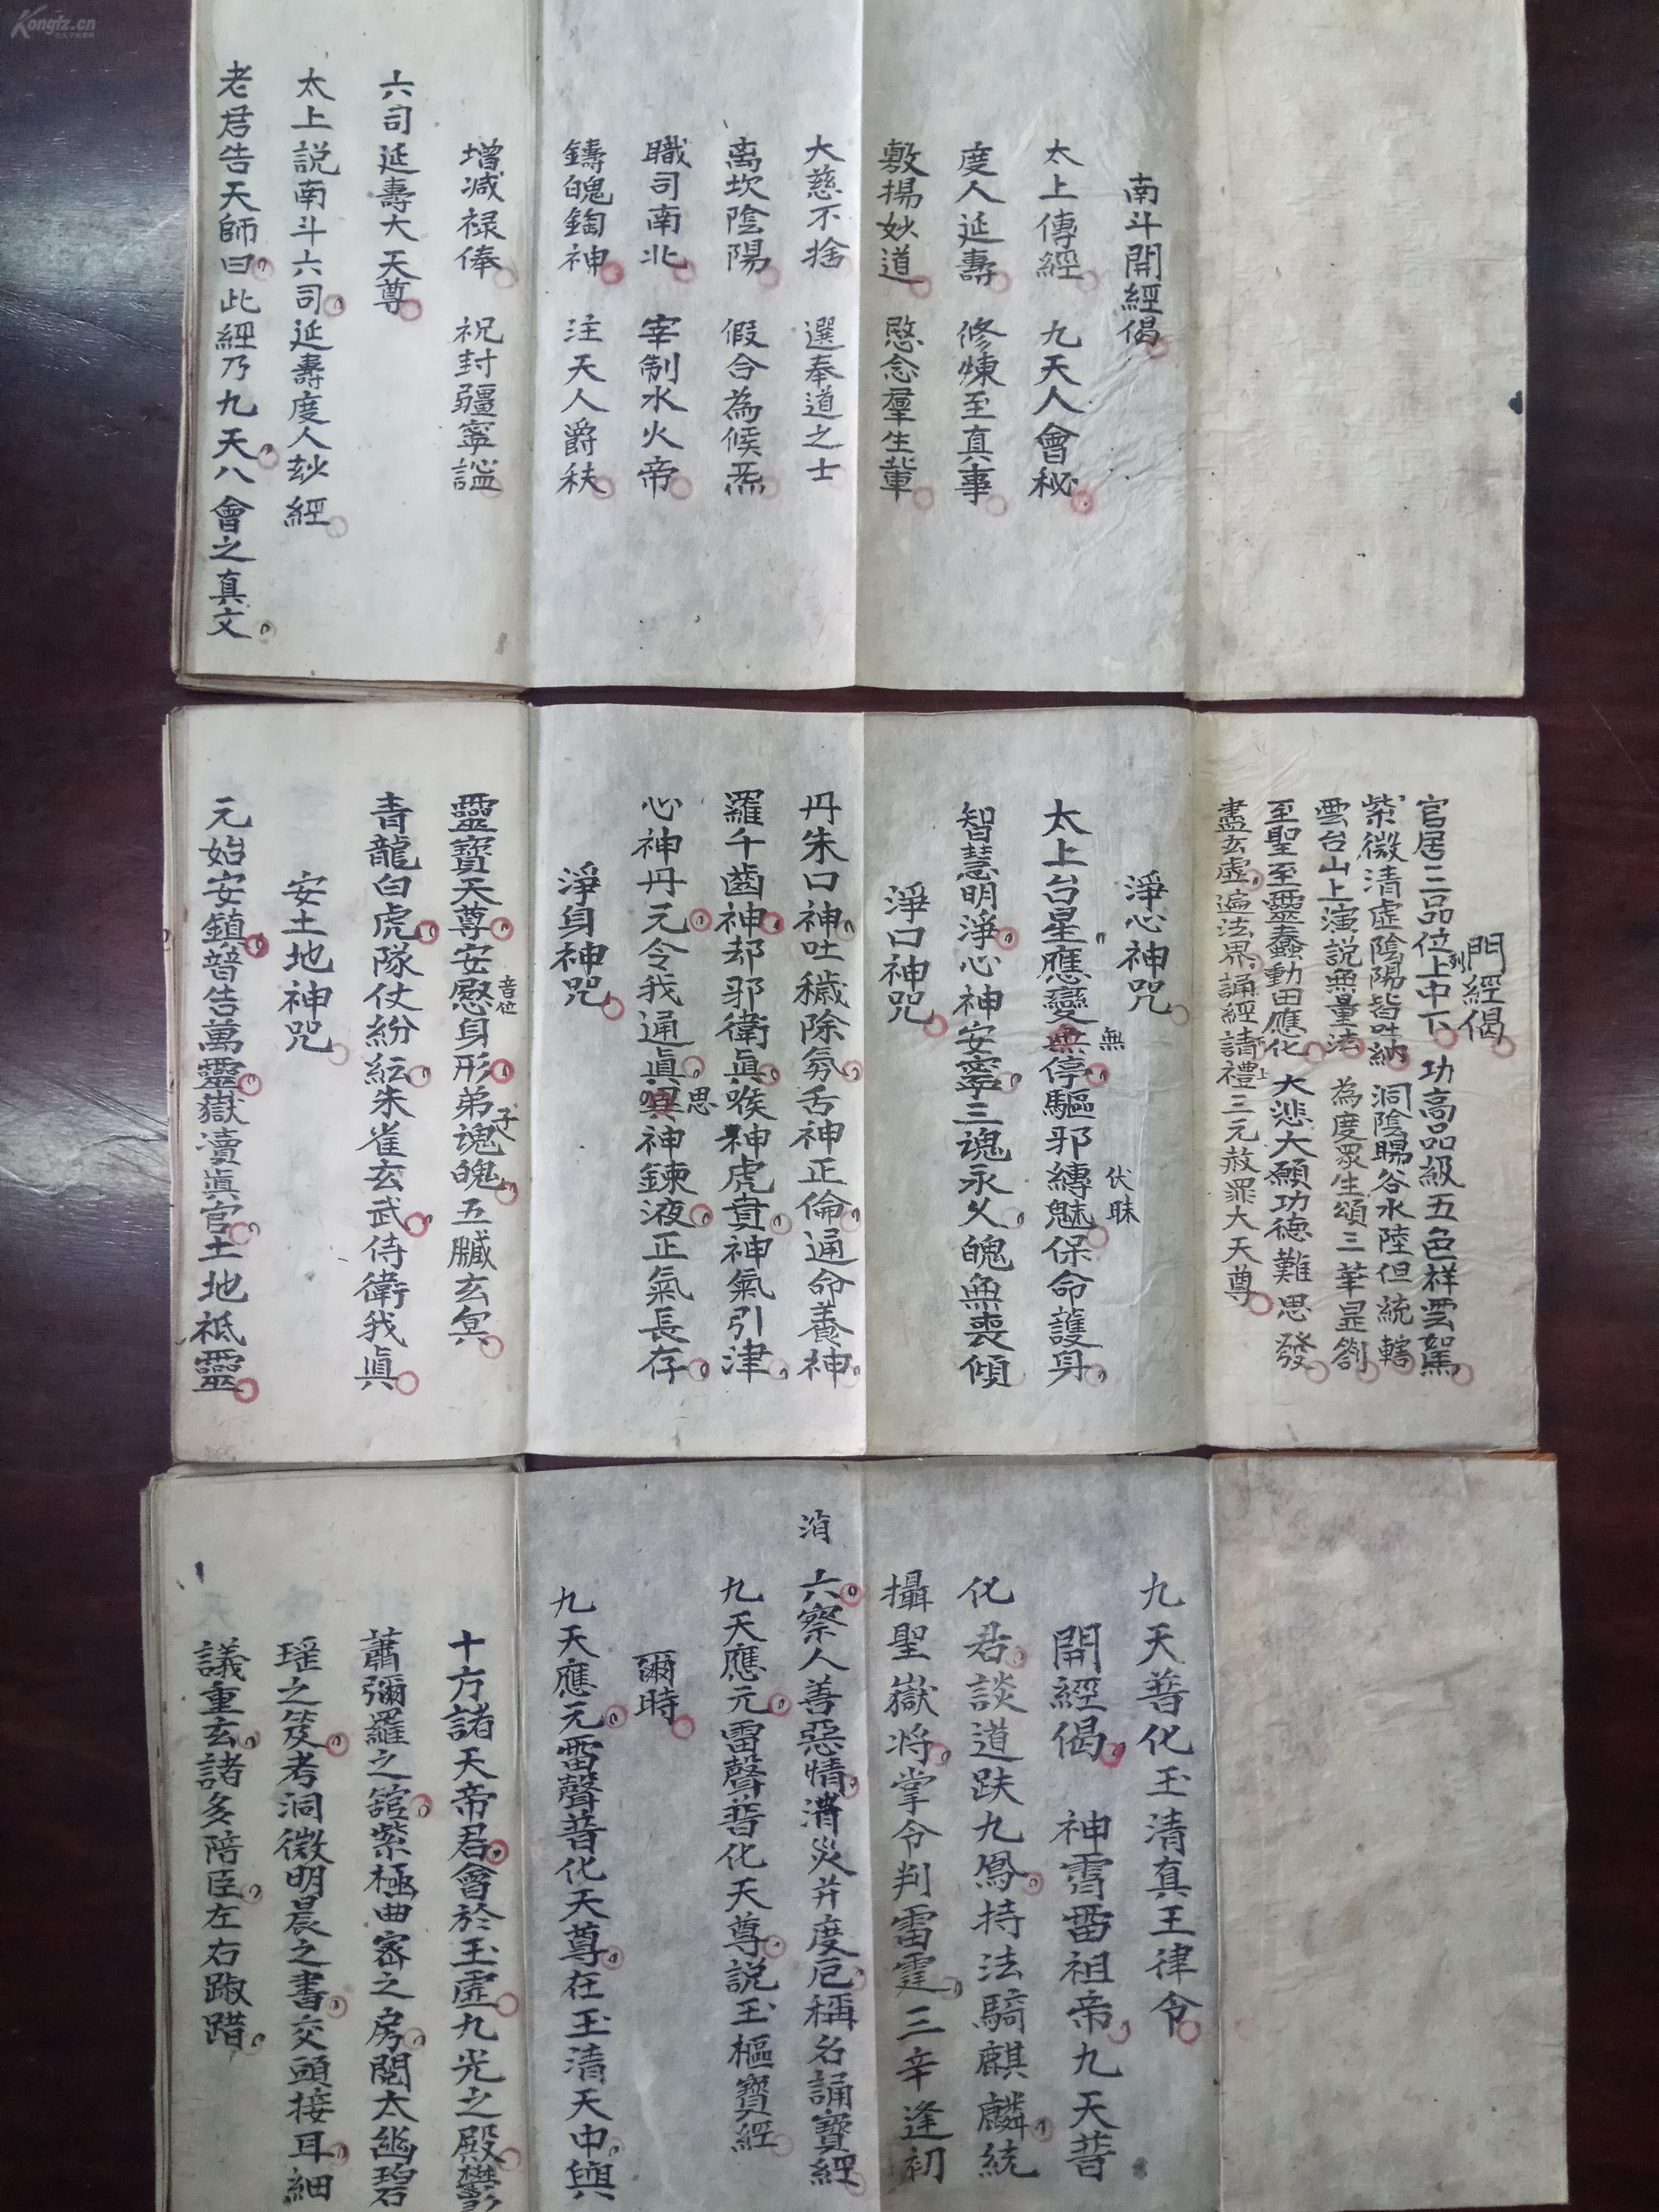 Kongfz.cn
南斗開經偈
太上傳經 九天人會秘
度人延壽 修煉至真事
敷揚妙道 愍念羣生輩
大慈不捨 選奉道之士
离坎陰陽 假合為候炁
職司南北 宰制水火帝
鑄魄鋾神 注天人爵秩
增減禄俸 祝封疆寧謐
六司延壽大天尊
太上説南斗六司延壽度人玅經
老君告天師曰此經乃九天八會之真文
開經偈
官居三品位列上中下 功高品級五色祥雲駕
紫微清虛陰陽皆吐納 洞陰暘谷水陸但統轄
雲台山上演説無量法 為度眾生頌三華昰劄
至聖至靈蠢動田應化 大悲大願功德難思發
盡玄虛遍法界誦經請禮上三元赦罪大天尊
淨心神咒
太上台星應變無停驅邪縛魅保命護身
無
伏昧
智慧明淨心神安寧三魂永久魄無喪傾
淨口神咒
丹朱口神吐穢除氛舌神正倫通命養神
羅千齒神却邪衛眞喉神虎賁神氣引津
心神丹元令我通眞 神鍊液正氣長存
思
淨身神咒
靈寶天尊安慰身形弟子魂魄五臟玄冥
青龍白虎隊仗紛紜朱雀玄武侍衛我眞
安土地神咒
元始安鎮普告萬靈嶽瀆眞官土地祇靈
九天普化玉清真王律令
開經偈 神霄雷祖帝九天普
化君談道趺九鳳持法騎麒麟統
攝聖嶽將掌令判雷霆三辛逢初
六察人善惡情消災幷度厄稱名誦寶經
消
九天應元雷聲普化天尊説玉樞寶經
爾時
九天應元雷聲普化天尊在玉清天中與
十方諸天帝君會於玉虛九光之殿鬱
蕭彌羅之舘紫極曲宻之房閱太幽碧
瑤之笈考洞微明晨之書交頭接耳細
議重玄諸多陪臣左右踧踖